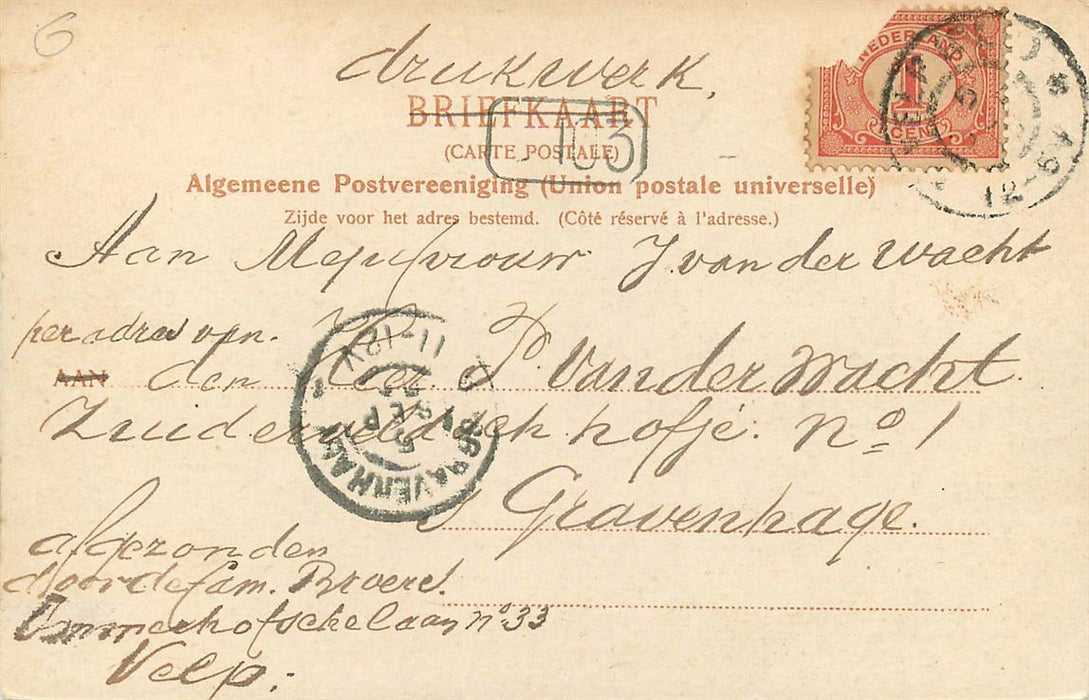 6
drukwerk,
BRIEFKAART
103
(CARTE POSTALE)
Algemeene Postvereeniging (Union postale universelle)
Zijde voor het adres bestemd. (Côté réservé à l'adresse.)
NEDERLAND
1
CENT
Aan Mejufvrouw J van der Wacht
per adres van.
AAN den Heer P van der Wacht.
hofje. no 1
s Gravenhage.
11-12V
SEP
'S GRAVENHAGE
afgezonden
door de fam. Broers.
no 33
Velp.